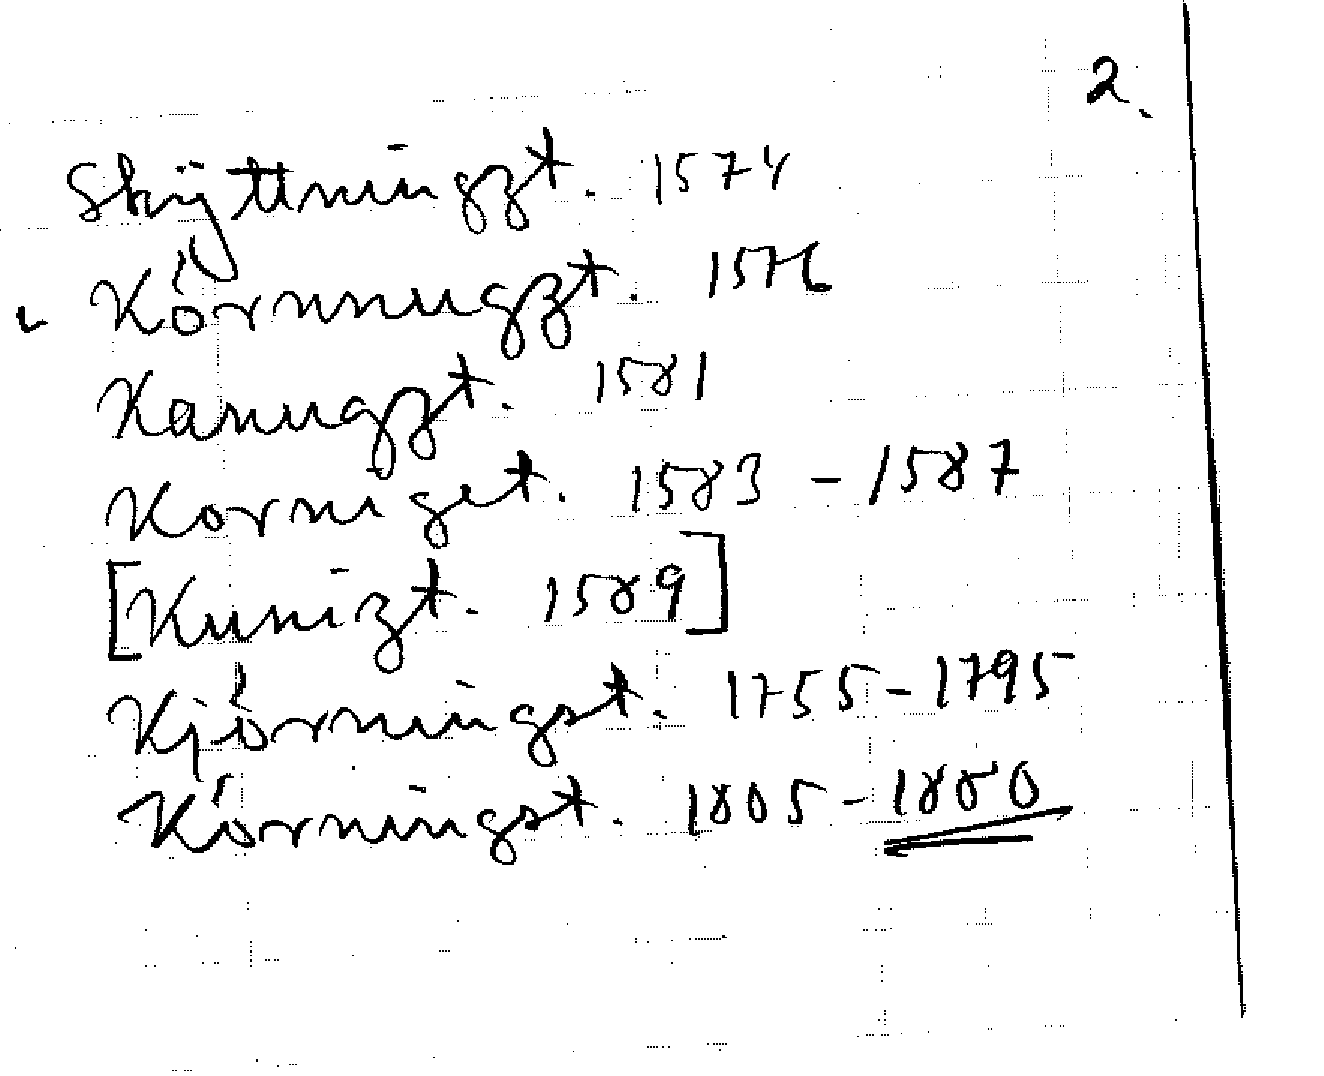 2.
Skyttningzt. 1574
Körnnugzt. 1576
Kanugzt. 1581
Korniget. 1583 - 1587
[Kunizt. 1589]
Kjörningst. 1755-1795
Körningst. 1805-1880